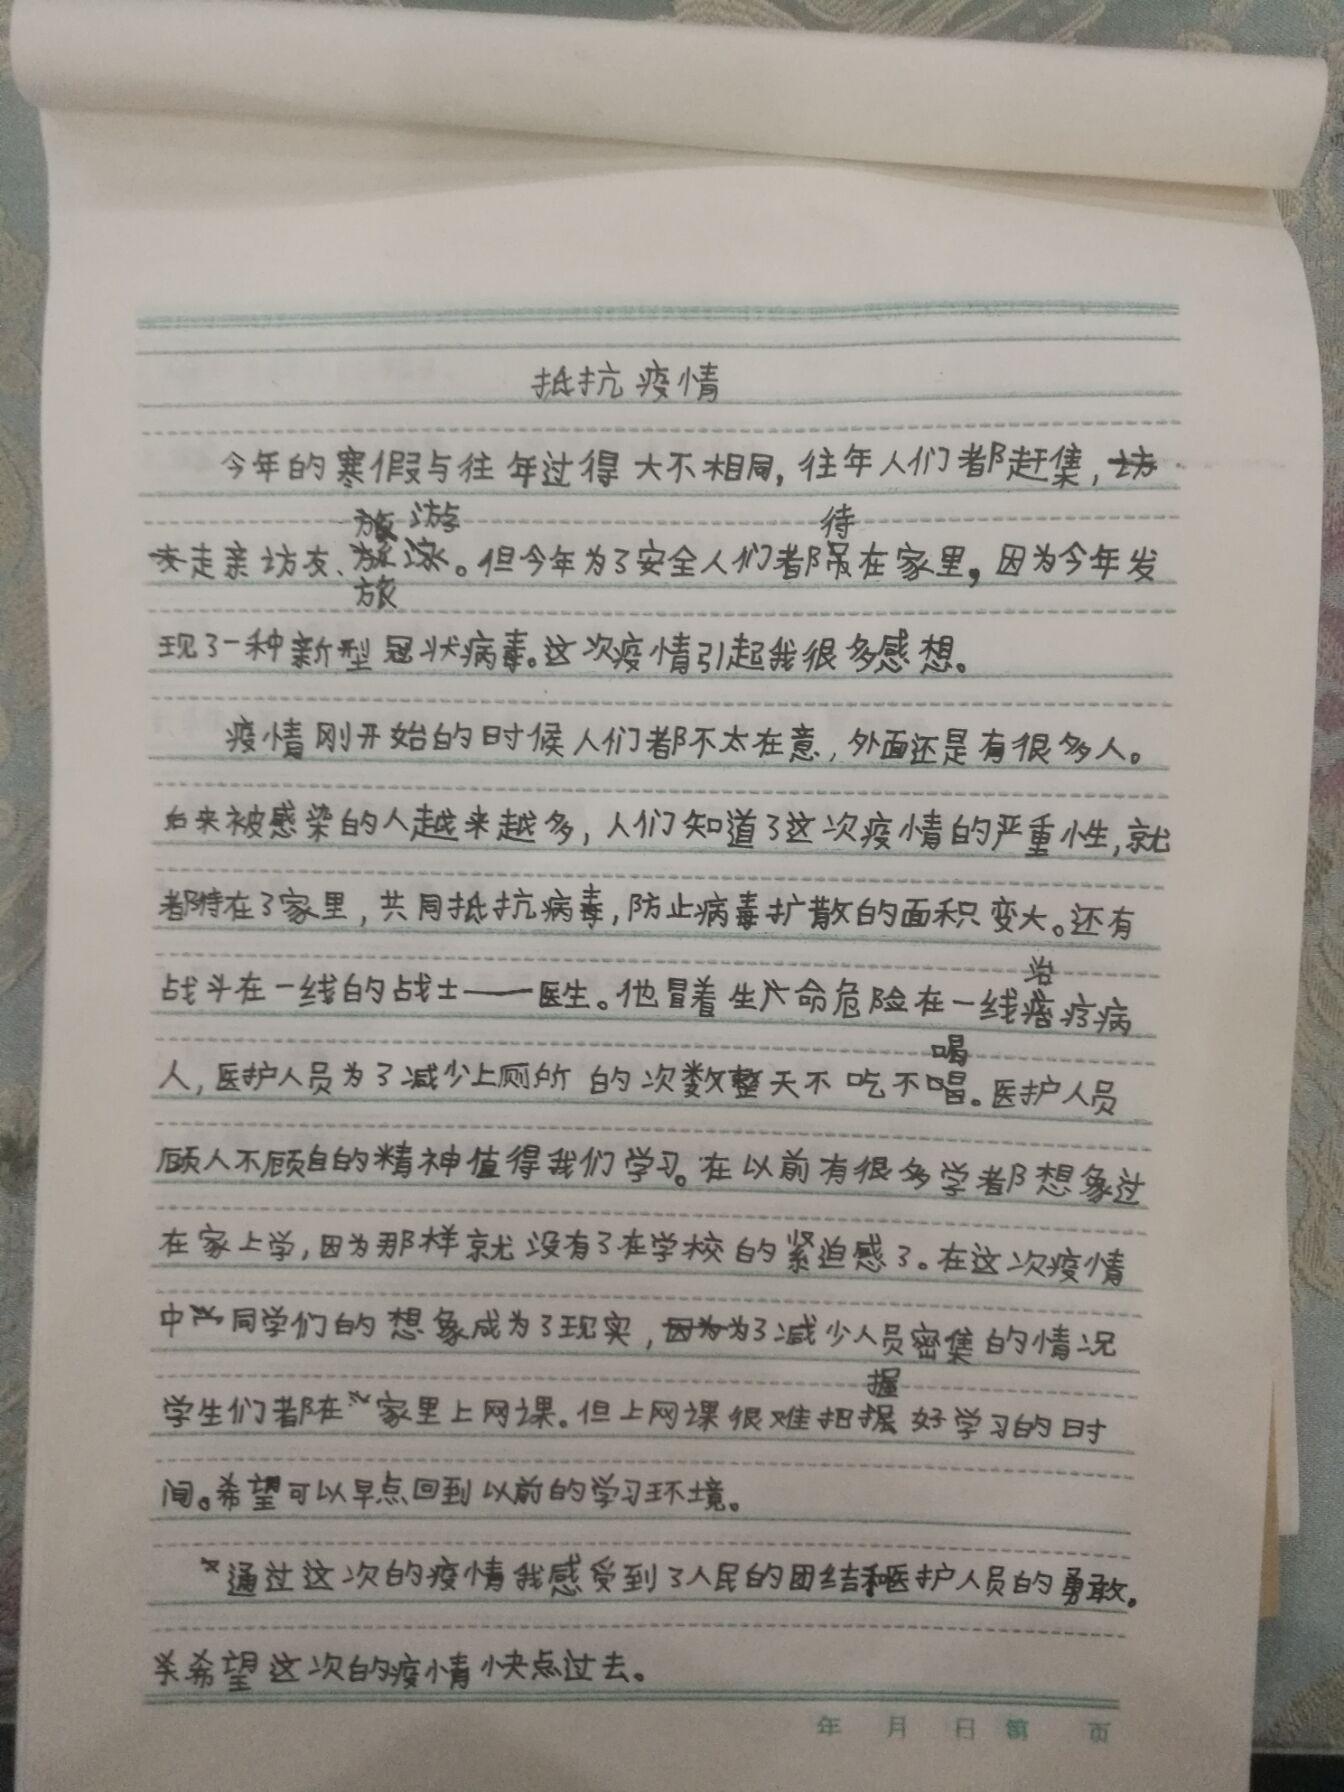 抵抗疫情
今年的寒假与往年过得大不相同，往年人们都赶集，
走亲访友、旅游。但今年为了安全人们都待在家里，因为今年发
现了一种新型冠状病毒。这次疫情引起我很多感想。
疫情刚开始的时候人们都不太在意，外面还是有很多人。
后来被感染的人越来越多，人们知道了这次疫情的严重性，就
都待在了家里，共同抵抗病毒，防止病毒扩散的面积变大。还有
战斗在一线的战士——医生。他冒着生产命危险在一线治疗病
人，医护人员为了减少上厕所的次数整天不吃不喝。医护人员
顾人不顾自的精神值得我们学习。在以前有很多学都想象过
在家上学，因为那样就没有了在学校的紧迫感了。在这次疫情
中同学们的想象成为了现实，为了减少人员密集的情况
学生们都在家里上网课。但上网课很难把握好学习的时
间。希望可以早点回到以前的学习环境。
通过这次的疫情我感受到了人民的团结和医护人员的勇敢。
希望这次的疫情快点过去。
年 月 日 第 页